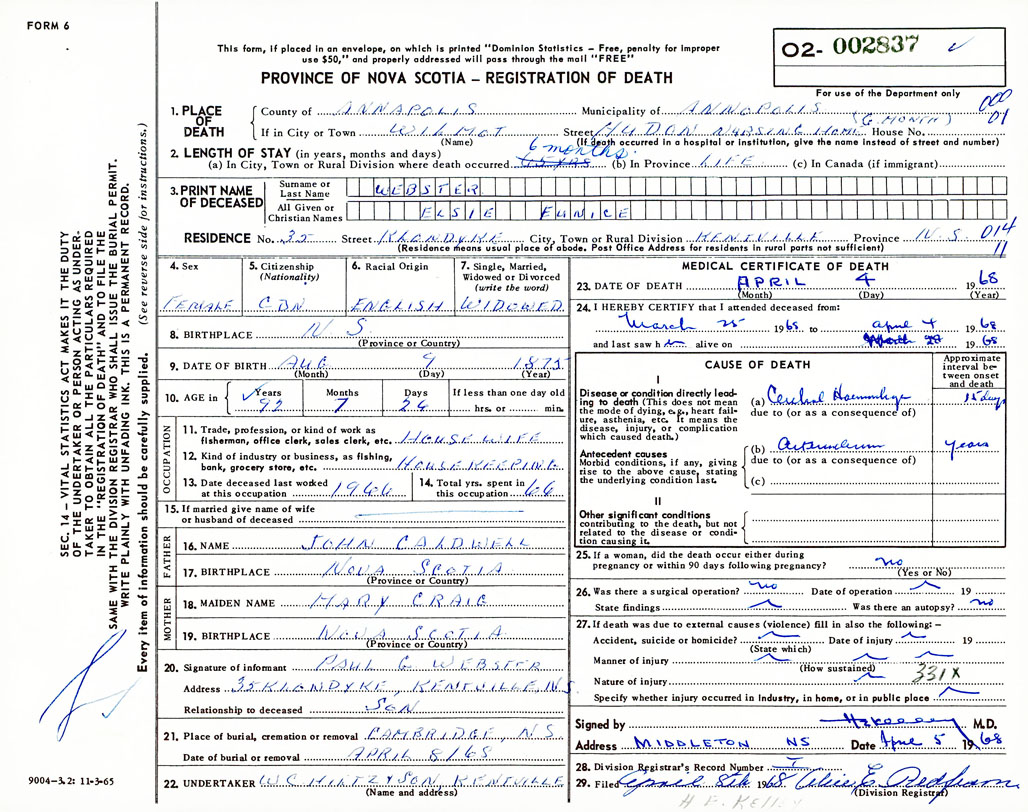 FORM 6
This form, if placed in an envelope, on which is printed "Dominion Statistics – Free, penalty for improper
use $50," and properly addressed will pass through the mail "FREE"
PROVINCE OF NOVA SCOTIA – REGISTRATION OF DEATH
02- 002837
For use of the Department only
000
01
1. PLACE OF DEATH
County of ANNAPOLIS Municipality of ANNOPOLIS
(6 MONTH)
If in City or Town WILMOT Street NURSING HOME House No.
(Name) (If death occurred in a hospital or institution, give the name instead of street and number)
2. LENGTH OF STAY (in years, months and days)
6 months
(a) In City, Town or Rural Division where death occurred (b) In Province LIFE (c) In Canada (if immigrant)
3. PRINT NAME OF DECEASED
Surname or Last Name WEBSTER
All Given or Christian Names ELSIE EUNICE
RESIDENCE No. 35 Street KLONDYKE City, Town or Rural Division KENTVILLE Province N.S. 014
11
(Residence means usual place of abode. Post Office Address for residents in rural parts not sufficient)
4. Sex
FEMALE
5. Citizenship (Nationality)
CDN
6. Racial Origin
ENGLISH
7. Single, Married, Widowed or Divorced (write the word)
WIDOWED
8. BIRTHPLACE N S
(Province or Country)
9. DATE OF BIRTH AUG 9 1875
(Month) (Day) (Year)
10. AGE in
Years 92
Months 7
Days 24
If less than one day old
hrs. or min.
OCCUPATION
11. Trade, profession, or kind of work as
fisherman, office clerk, sales clerk, etc. HOUSE WIFE
12. Kind of industry or business, as fishing,
bank, grocery store, etc. HOUSE KEEPING
13. Date deceased last worked
at this occupation 1966
14. Total yrs. spent in
this occupation 66
15. If married give name of wife
or husband of deceased
FATHER
16. NAME JOHN CALDWELL
17. BIRTHPLACE NOVA SCOTIA
(Province or Country)
MOTHER
18. MAIDEN NAME MARY CRAIG
19. BIRTHPLACE NOVA SCOTIA
(Province or Country)
20. Signature of informant PAUL G WEBSTER
Address 35 KLONDYKE, KENTVILLE, N S
Relationship to deceased SON
21. Place of burial, cremation or removal CAMBRIDGE, N S
Date of burial or removal APRIL 8/68
22. UNDERTAKER KENTVILLE
(Name and address)
MEDICAL CERTIFICATE OF DEATH
23. DATE OF DEATH APRIL 4 1968
(Month) (Day) (Year)
24. I HEREBY CERTIFY that I attended deceased from:
March 25 1968 to April 4 1968
and last saw h alive on 1968
CAUSE OF DEATH
Approximate interval between onset and death
I
Disease or condition directly leading to death (This does not mean the mode of dying, e.g., heart failure, asthenia, etc. It means the disease, injury, or complication which caused death.)
(a) Cerebral Haemorrhage days
due to (or as a consequence of)
Antecedent causes
Morbid conditions, if any, giving rise to the above cause, stating the underlying condition last.
(b) years
due to (or as a consequence of)
(c)
II
Other significant conditions contributing to the death, but not related to the disease or condition causing it.
25. If a woman, did the death occur either during
pregnancy or within 90 days following pregnancy? no
(Yes or No)
26. Was there a surgical operation? no Date of operation 19
State findings Was there an autopsy? no
27. If death was due to external causes (violence) fill in also the following: –
Accident, suicide or homicide? Date of injury 19
(State which)
Manner of injury
(How sustained)
331X
Nature of injury
Specify whether injury occurred in Industry, in home, or in public place
Signed by M.D.
Address MIDDLETON NS Date April 5 1968
28. Division Registrar's Record Number
29. Filed April 8th 1968
(Division Registrar)
H E. Kelley
9004-3.2: 11-3-65
SEC. 14 – VITAL STATISTICS ACT MAKES IT THE DUTY
OF THE UNDERTAKER OR PERSON ACTING AS UNDER-
TAKER TO OBTAIN ALL THE PARTICULARS REQUIRED
IN THE "REGISTRATION OF DEATH" AND TO FILE THE
SAME WITH THE DIVISION REGISTRAR WHO SHALL ISSUE THE BURIAL PERMIT.
WRITE PLAINLY WITH UNFADING INK. THIS IS A PERMANENT RECORD.
Every item of information should be carefully supplied. (See reverse side for instructions.)